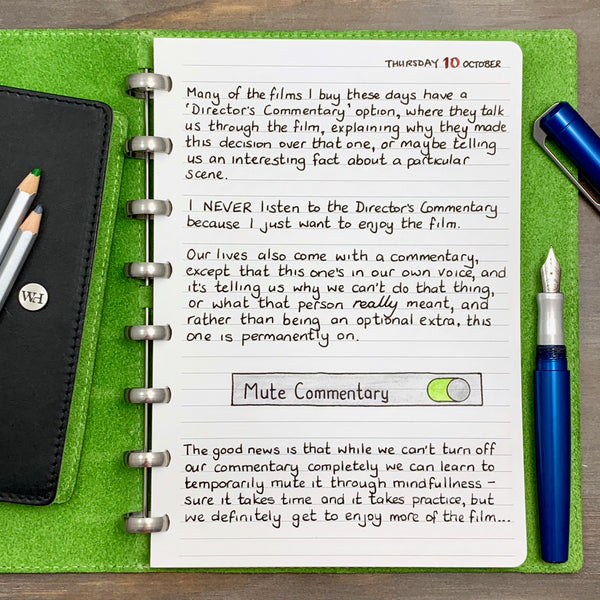 THURSDAY 10 OCTOBER
Many of the films I buy these days have a
'Director's Commentary' option, where they talk
us through the film, explaining why they made
this decision over that one, or maybe telling
us an interesting fact about a particular
scene.
I NEVER listen to the Director's Commentary
because I just want to enjoy the film.
Our lives also come with a commentary,
except that this one's in our own voice, and
it's telling us why we can't do that thing,
or what that person really meant, and
rather than being an optional extra, this
one is permanently on.
Mute Commentary
The good news is that while we can't turn off
our commentary completely we can learn to
temporarily mute it through mindfulness –
sure it takes time and it takes practice, but
we definitely get to enjoy more of the film...